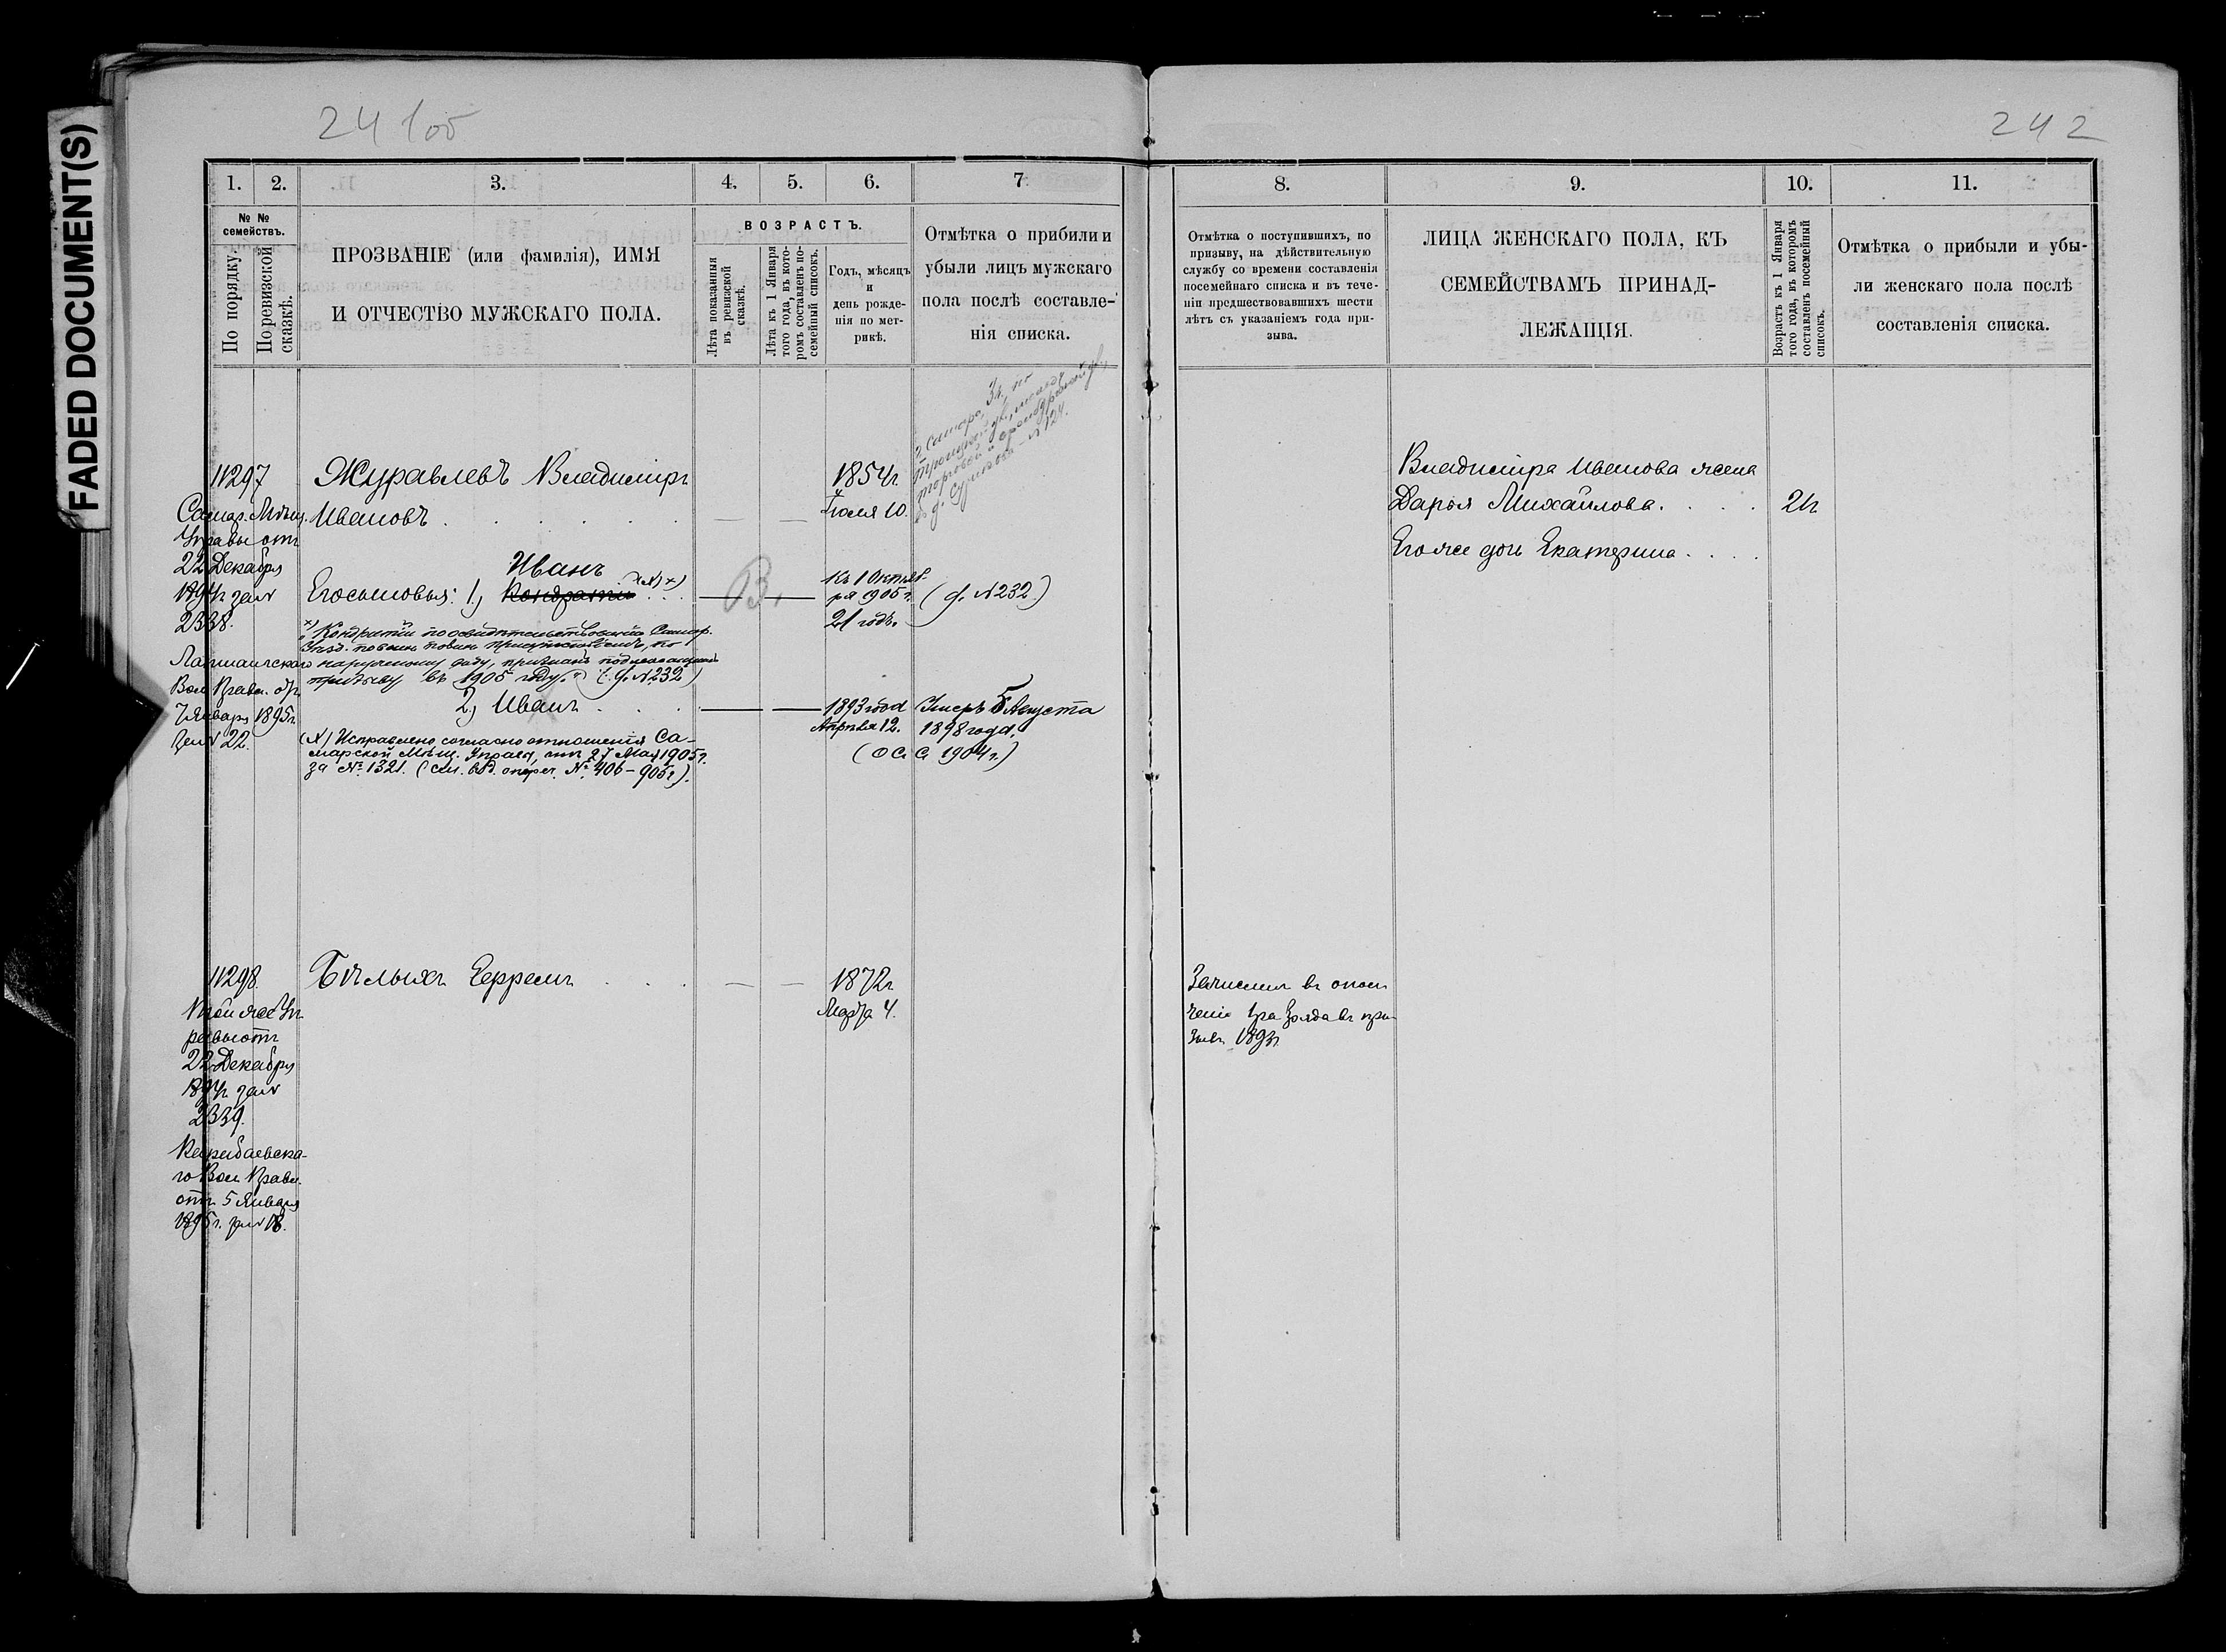 FADED DOCUMENT(S)
24 1об
242
1.
2.
3.
4.
5.
6.
7.
8.
9.
10.
11.
№ №
семействъ.
По порядку.
По ревизской
сказкѣ.
ПРОЗВАНІЕ (или фамилія), ИМЯ
И ОТЧЕСТВО МУЖСКАГО ПОЛА.
ВОЗРАСТЪ.
Лѣта показанныя
въ ревизской
сказкѣ.
Лѣта къ 1 Января
того года, въ кото-
ромъ составленъ по-
семейный списокъ.
Годъ, мѣсяцъ
и
день рожде-
нія по мет-
рикѣ.
Отмѣтка о прибыли и
убыли лицъ мужскаго
пола послѣ составле-
нія списка.
Отмѣтка о поступившихъ, по
призыву, на дѣйствительную
службу со времени составленія
посемейнаго списка и въ тече-
ніи предшествовавшихъ шести
лѣтъ съ указаніемъ года при-
зыва.
ЛИЦА ЖЕНСКАГО ПОЛА, КЪ
СЕМЕЙСТВАМЪ ПРИНАД-
ЛЕЖАЩІЯ.
Возрастъ къ 1 Января
того года, въ которомъ
составленъ посемейный
списокъ.
Отмѣтка о прибыли и убы-
ли женскаго пола послѣ
составленія списка.
11297
Самар. Мѣщ.
Управы отъ
22 Декабря
1894г за №
2338.
Вол. Правл. от
7 Января 1895г
за № 22.
Журавлевъ Владиміръ
Ивановъ
Иванъ
Его сыновья: 1, Кондратій (N) х)
х) Кондратій по освидѣтельствованіи Самар.
Уѣзд. по воин. повин. присутствіемъ, по
наружному виду, признанъ подлежащимъ
призыву въ 1905 году. (д. № 232)
2, Иванъ
(N) Исправлено согласно отношенія Са-
марской Мѣщ. Управы, отъ 27 Мая 1905г.
за № 1321. (см. вход. № 406-905г).
В.
1854г
Іюля 10.
Къ 1 Октяб-
ря 1905 г.
21 годъ.
1893 год
Апрѣля 12.
г. Самара, 3ч, по
(д. № 232)
Умеръ 5 Августа
1898 года.
1904 г.)
Владиміра Иванова жена
Дарья Михайлова.
Его же дочь Екатерина
24
11298
Той же Уп
равы отъ
22 Декабря
1894г за №
2339.
го Вол Правл.
отъ 5 Января
1895г. за № 18.
Бѣлыхъ Ефремъ
1872г
Марта 4.
Зачисленъ въ опол
ченіе 1 разряда въ при-
зывъ 1893г